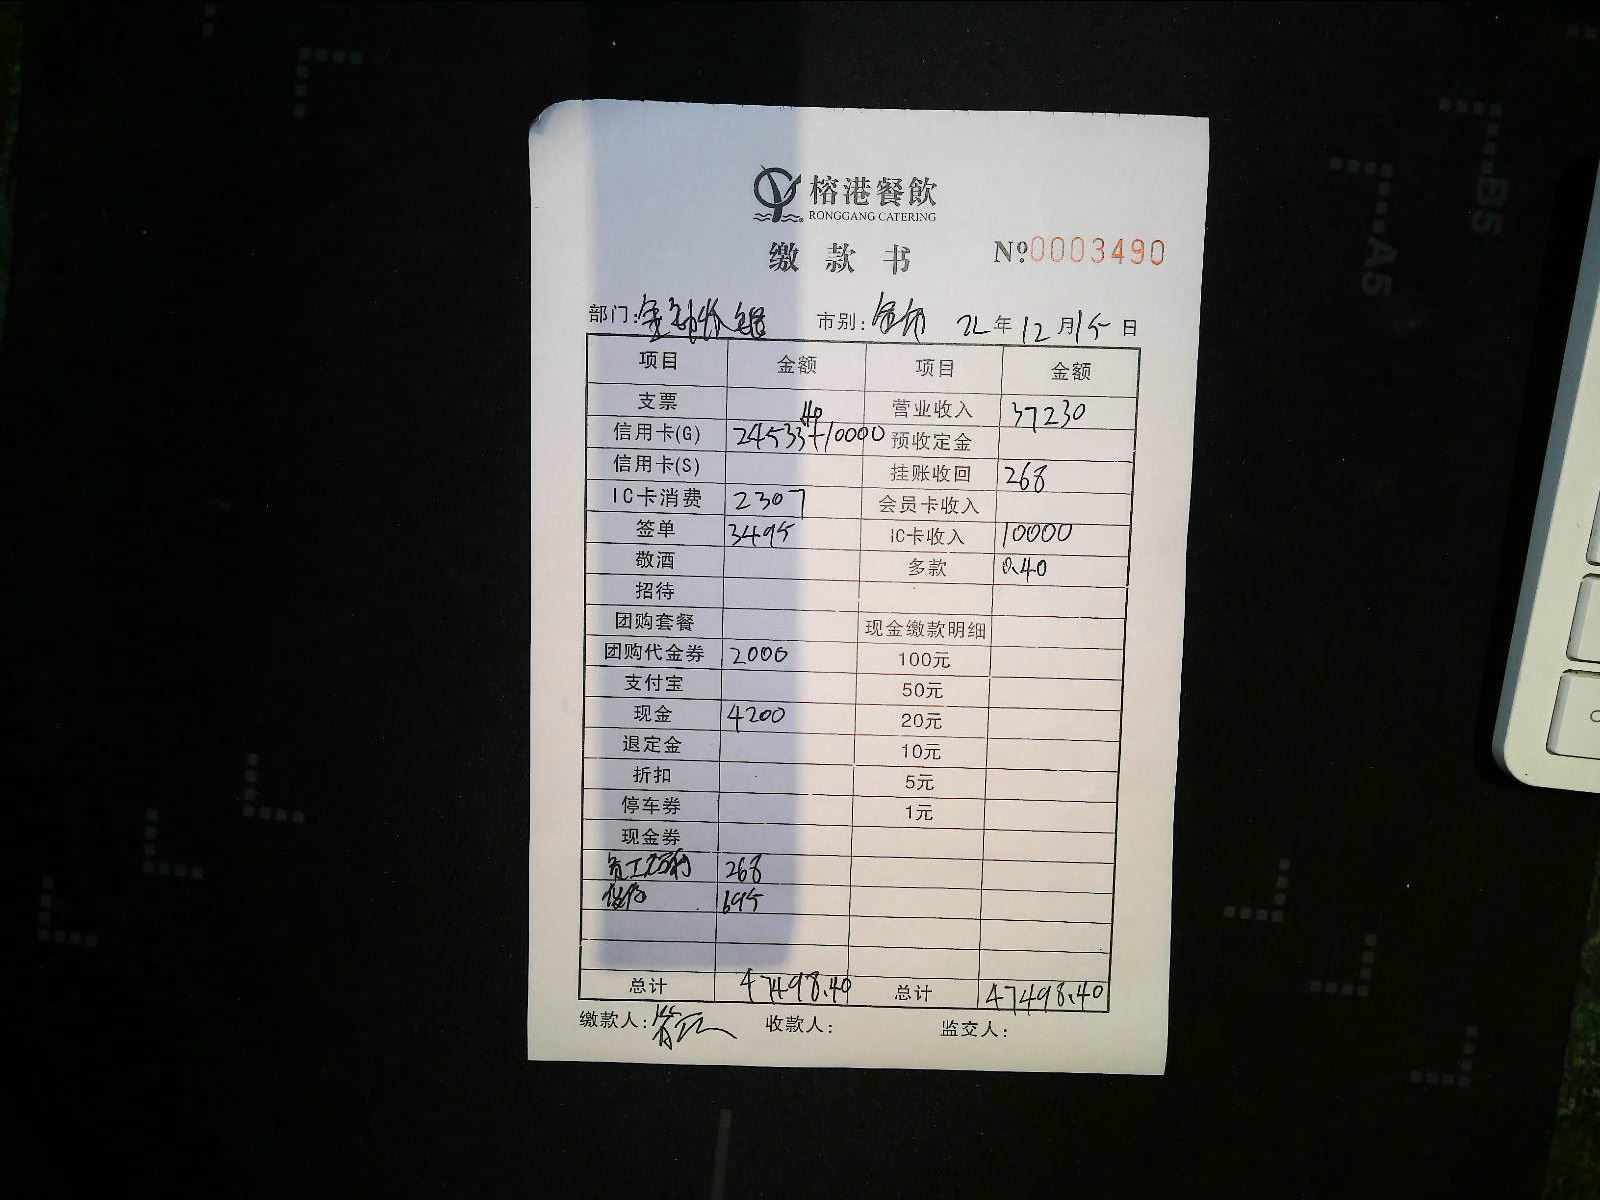 榕港餐飲
RONGGANG CATERING
缴款书 Nº0003490
部门: 市别: 全市 22年12月15日
项目 金额 项目 金额
支票 营业收入 37230
信用卡(G) 24533.40+10000 预收定金
信用卡(S) 挂账收回 268
IC卡消费 2307 会员卡收入
签单 3495 IC卡收入 10000
敬酒 多款 0.40
招待
团购套餐 现金缴款明细
团购代金券 2000 100元
支付宝 50元
现金 4200 20元
退定金 10元
折扣 5元
停车券 1元
现金券
员工福利 268
695
总计 47498.40 总计 47498.40
缴款人: 收款人: 监交人:
B5
A5